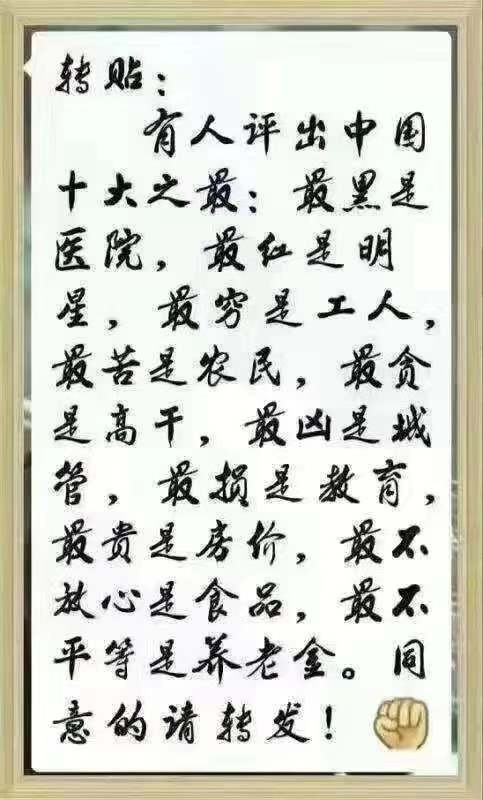 转贴：
有人评出中国
十大之最：最黑是
医院，最红是明
星，最穷是工人，
最苦是农民，最贪
是高干，最凶是城
管，最损是教育，
最贵是房价，最不
放心是食品，最不
平等是养老金。同
意的请转发！